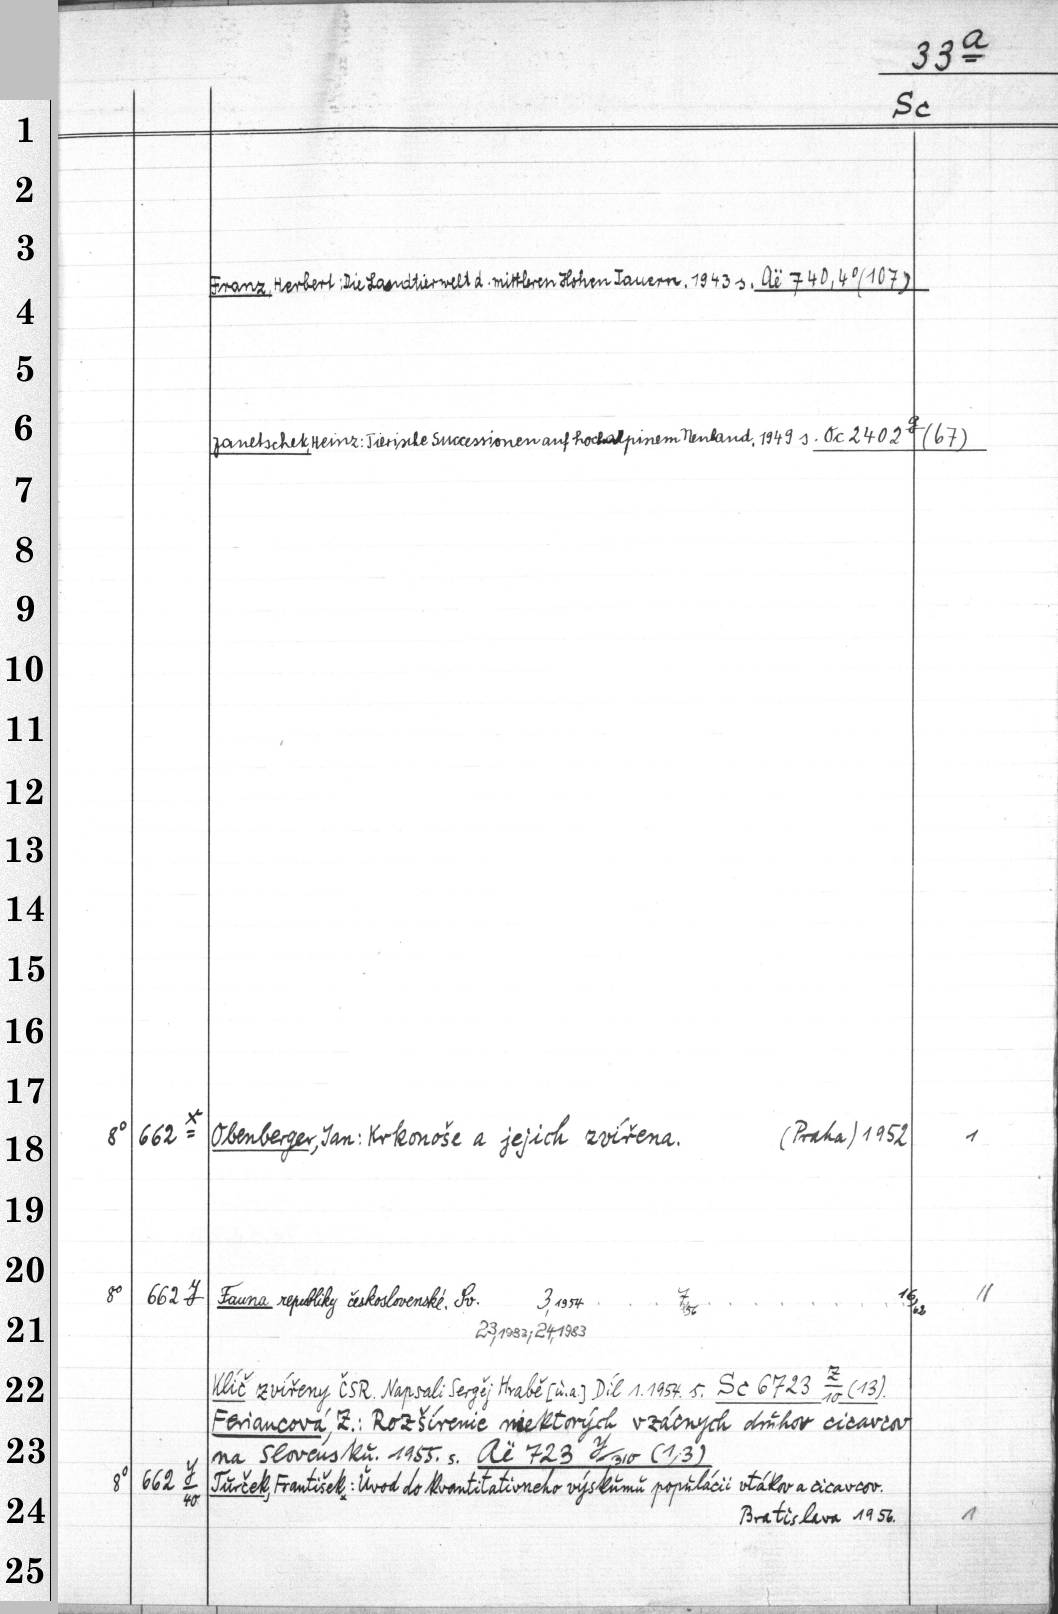 33 a
Sc
1
2
3
Franz, Herbert: Die Landtierwelt d. mittleren Hohen Tauern. 1943 s. Aë 740, 4° (107)
4
5
6
Janetschek, Heinz: Tierische Successionen auf hochalpinem Neuland. 1949 s. Oc 2402 g (67)
7
8
9
10
11
12
13
14
15
16
17
8° 662 x Obenberger, Jan: Krkonoše a jejich zvířena. (Praha) 1952 1
18
19
20
8° 662 y Fauna republiky československé. Sv. 3, 1954 . . . . 7, 56 . . . . . . . . 16, 62 11
21 23, 1983; 24, 1983
22 Klíč zvířeny ČSR. Napsali Sergěj Hrabě [u. a.] Díl 1. 1954. s. Sc 6723 z/10 (13).
Feriancová, Z.: Rozšírenie niektorých vzácnych druhov cicavcov
23 na Slovensku. 1955. s. Aë 723 y/310 (1,3)
8° 662 y/40 Turček, František: Úvod do kvantitatívneho výskumu populácií vtákov a cicavcov.
24 Bratislava 1956. 1
25